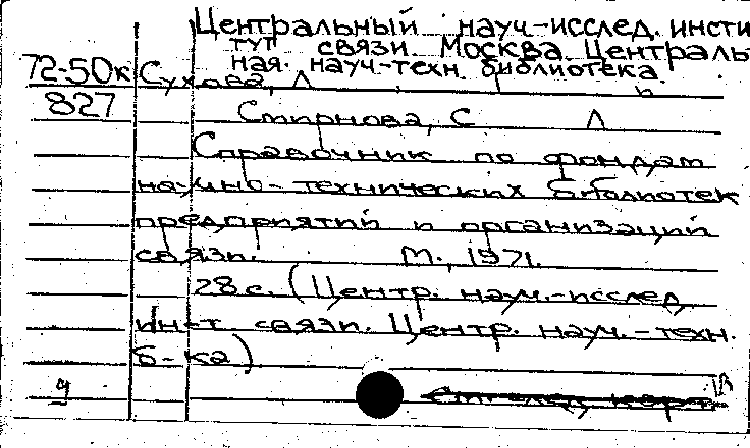 Центральный науч-исслед. инсти
тут связи. Москва. Централь
ная. науч-техн. библиотека
72-50к Сухова, Л
827 Смирнова, С Л
Справочник по фондам
научно-технических библиотек
предприятий и организаций
связи. М., 1971.
28 с. (Центр. науч.-исслед
инст. связи. Центр. науч.-техн.
б-ка)